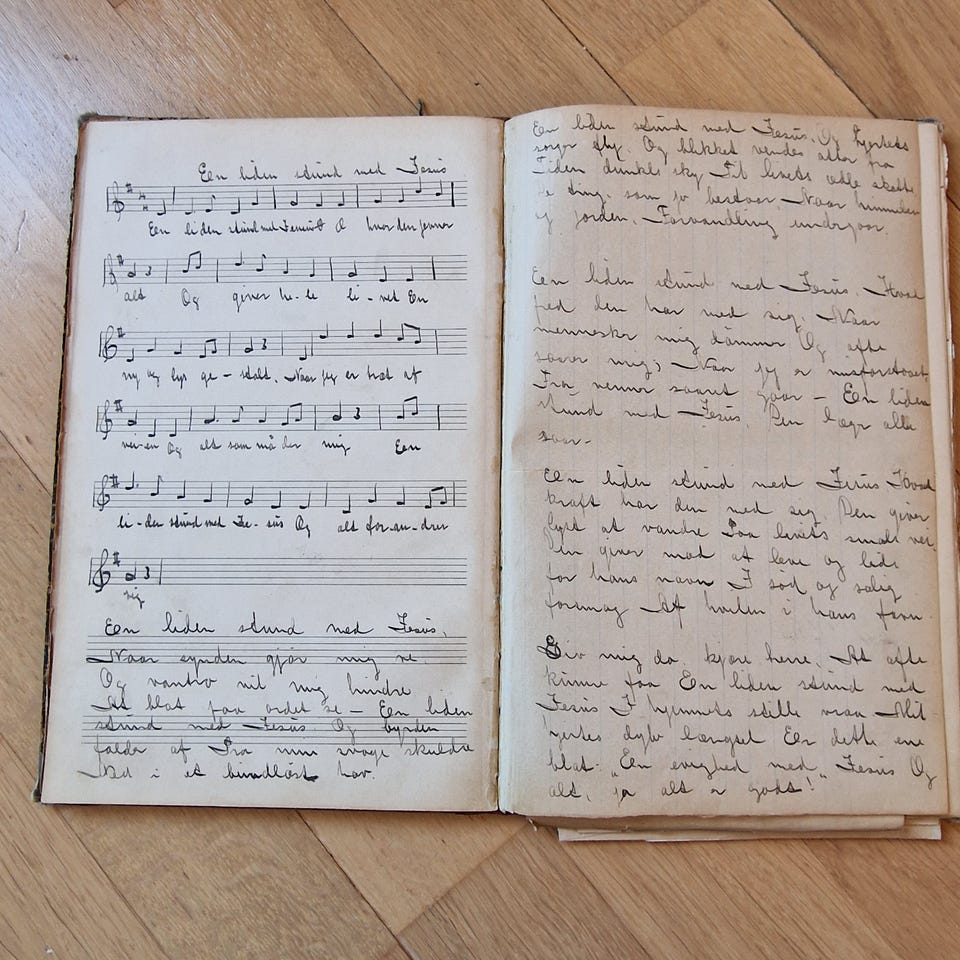 En liden stund med Jesus
En liden stund med Jesus O hvor den jevner
alt Og giver he-le li-vet En
ny og lys ge-stalt. Naar jeg er træt af
vei-en Og alt som mø der mig En
li-den stund med Je-sus Og alt for-an-drer
sig
En liden stund med Jesus,
Naar synden gjør mig ve.
Og vantro vil mig hindre
At blot paa ordet se – En liden
stund med Jesus. Og byrden
falder af Fra min svage skuldre
Ned i et bundløst hav.
En liden stund med Jesus, Og hjertets
sorger fly. Og blikket vendes atter fra
Tiden dunkle sky Til livets ædle skatte
De ting, som jo bestaar. Naar himmelen
og jorden, Forvandling undergaar.
En liden stund med Jesus. Hvad
fred den har med sig. Naar
mennesker mig dømmer Og ofte
saarer mig; Naar jeg er misforstaaet,
Fra venner saaret gaar – En liden
stund med Jesus, Den læger alle
saar.
En liden stund med Jesus Hvad
kraft har den med sig. Den giver
lyst at vandre Paa livets smale vei.
Den giver mod at leve og lide
for hans navn I sød og salig
forening At hvile i hans favn.
Giv mig da kjære herre, At ofte
kunne faa En liden stund med
Jesus I hjemmets stille vraa Mit
hjertes dybe længsel Er dette ene
blot: „En evighed med" Jesus Og
alt, ja alt er godt!